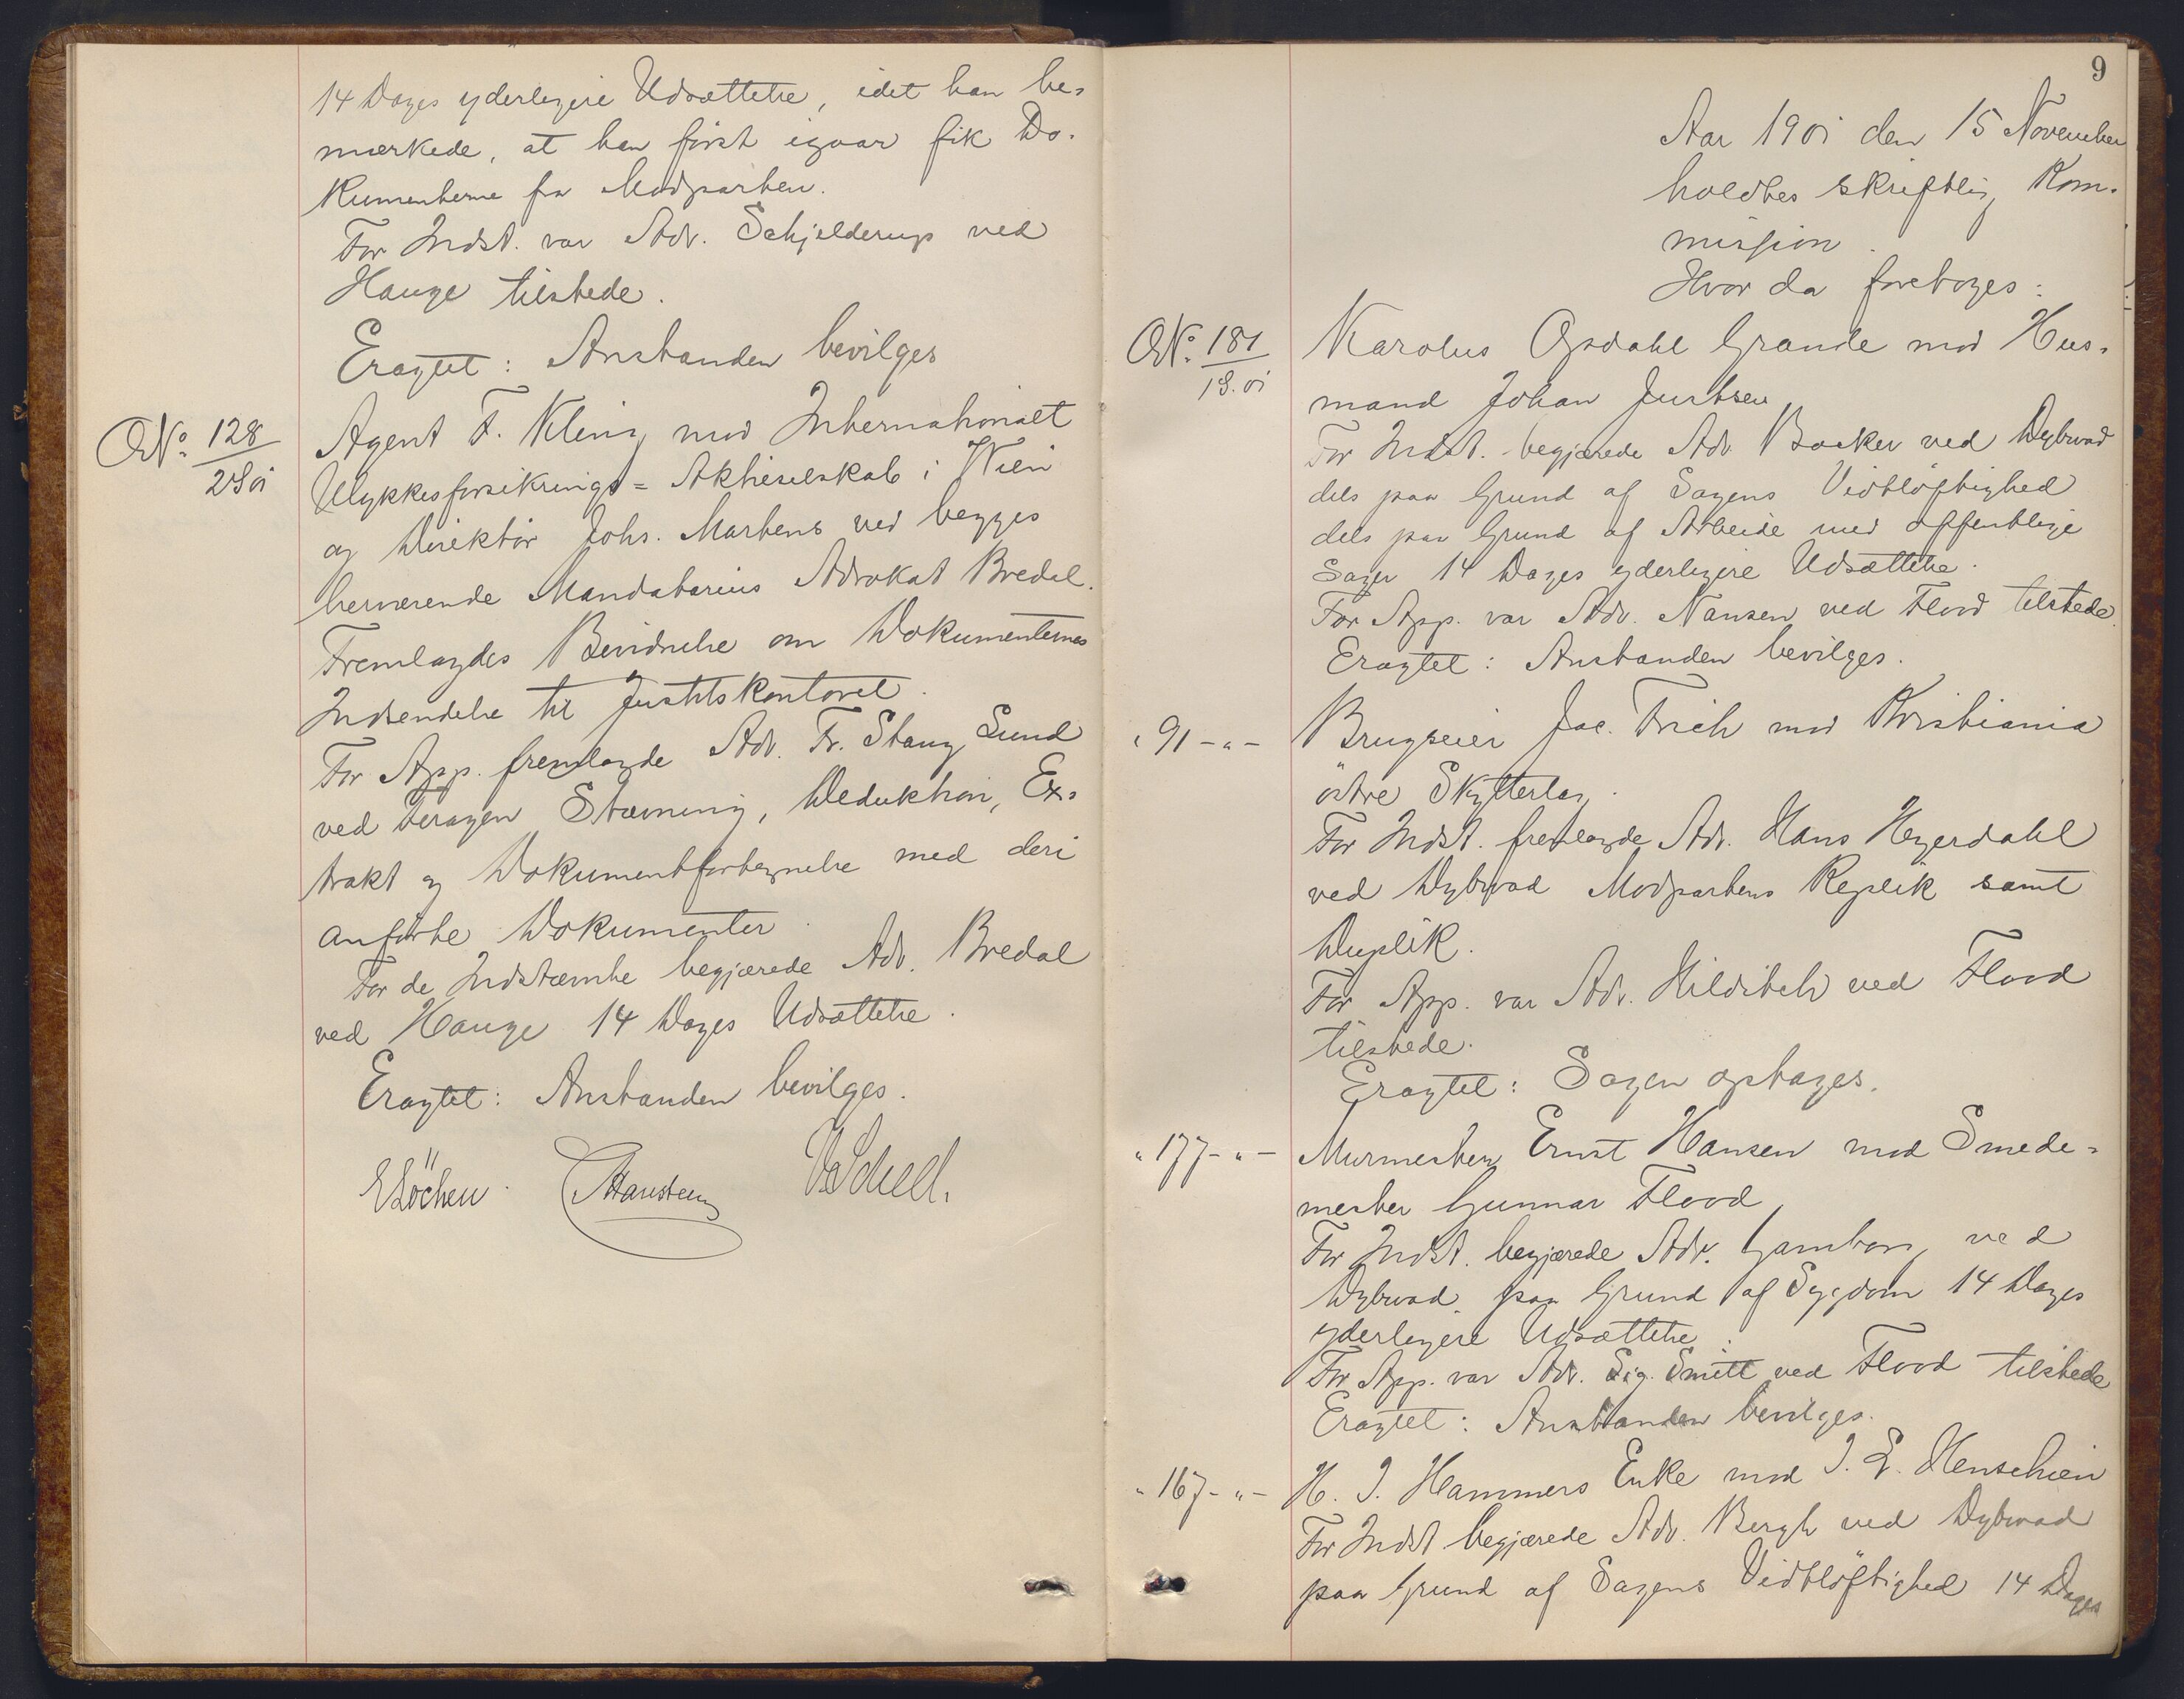 14 Dages yderligere Udsættelse, idet han be-
mærkede, at han først igaar fik Do-
kumenterne fra Modparten.
For Indst. var Adv. Schjelderup ved
Hauge tilstede.
Eragtet: Anstanden bevilges
No. 128
2S 01
Agent F. Kleng mod Internationalet
Ulykkesforsikrings=Aktieselskab i Wien
og Direktør Johs. Martens ved begges
herværende Mandatarius Advokat Bredal.
Fremlagdes Bevidnelse om Dokumenternes
Indsendelse til Justitskontoret.
For App. fremlagde Adv. Fr. Stang Lund
ved Stævning, Deduktion, Ex-
trakt og Dokumentfortegnelse med deri
anførte Dokumenter.
For de Indstævnte begjærede Adv. Bredal
ved Hauge 14 Dages Udsættelse.
Eragtet: Anstanden bevilges.
E Löchen. Hansteen Schell.
9
Aar 1901 den 15 November
holdtes skriftlig Kom-
mission.
Hvor da foretoges:
No. 181
1S. 01
Karolus Opdahl Grande mod Hus-
mand Johan Justsen
For Indst. begjærede Adv. Backer ved Dybwad
dels paa Grund af Sagens Vidtløftighed
dels paa Grund af Arbeide med offentlige
Sager 14 Dages yderligere Udsættelse.
For App. var Adv. Nansen ved Flood tilstede.
Eragtet: Anstanden bevilges.
" 91 - " -
Brugseier Jac. Trich mod Kristiania
østre Skytterlag.
For Indst. fremlagde Adv. Hans Heyerdahl
ved Dybwad Modpartens Replik samt
Duplik.
For App. var Adv. Hilditch ved Flood
tilstede.
Eragtet: Sagen optages.
" 177 - " -
Murmester Ernst Hansen mod Smede=
mester Gunnar Flood
For Indst. begjærede Adv. Gamborg ved
Dybwad paa Grund af Sygdom 14 Dages
yderligere Udsættelse.
For App. var Adv. Sig. Smitt ved Flood tilstede
Eragtet: Anstanden bevilges.
" 167 - " -
H. J. Hammers Enke mod J. E. Henschien
For Indst. begjærede Adv. Bergh ved Dybwad
paa Grund af Sagens Vidtløftighed 14 Dages